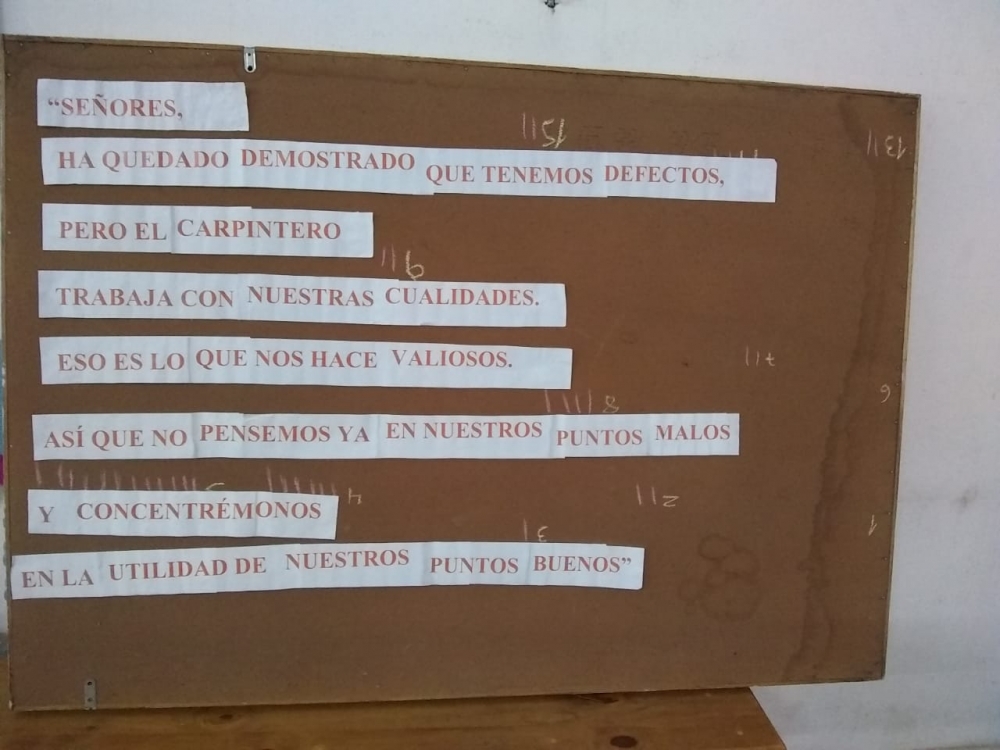 “SEÑORES,
HA QUEDADO DEMOSTRADO QUE TENEMOS DEFECTOS,
PERO EL CARPINTERO
TRABAJA CON NUESTRAS CUALIDADES.
ESO ES LO QUE NOS HACE VALIOSOS.
ASÍ QUE NO PENSEMOS YA EN NUESTROS PUNTOS MALOS
Y CONCENTRÉMONOS
EN LA UTILIDAD DE NUESTROS PUNTOS BUENOS”